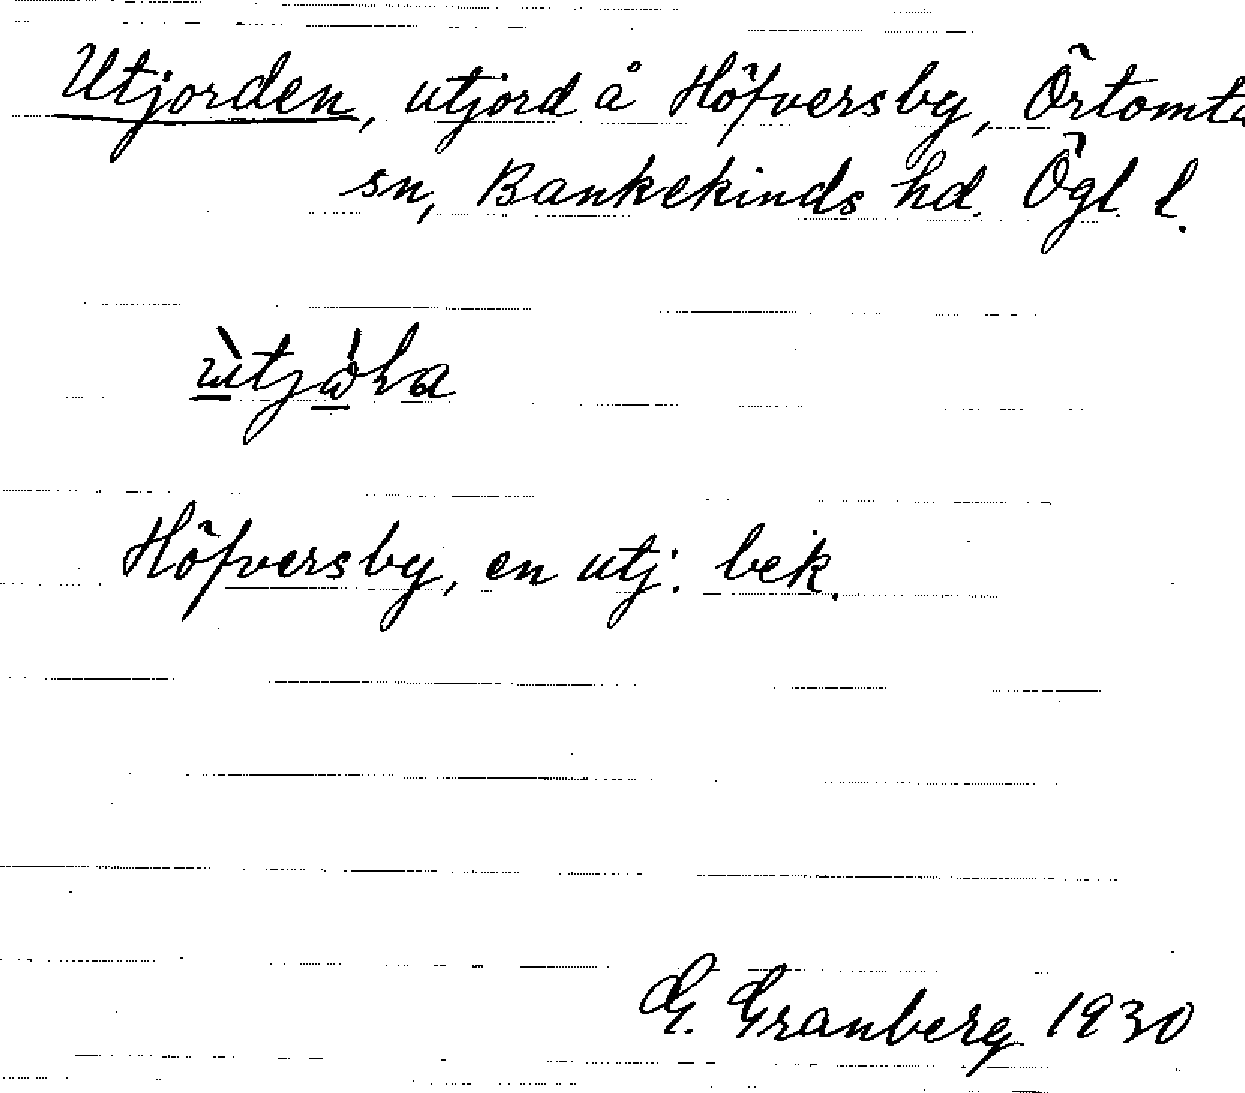 Utjorden, utjord å Höfversby, Örtomta
sn, Bankekinds hd. Ögl. l.
Höfversby, en utj. bek.
G. Granberg 1930